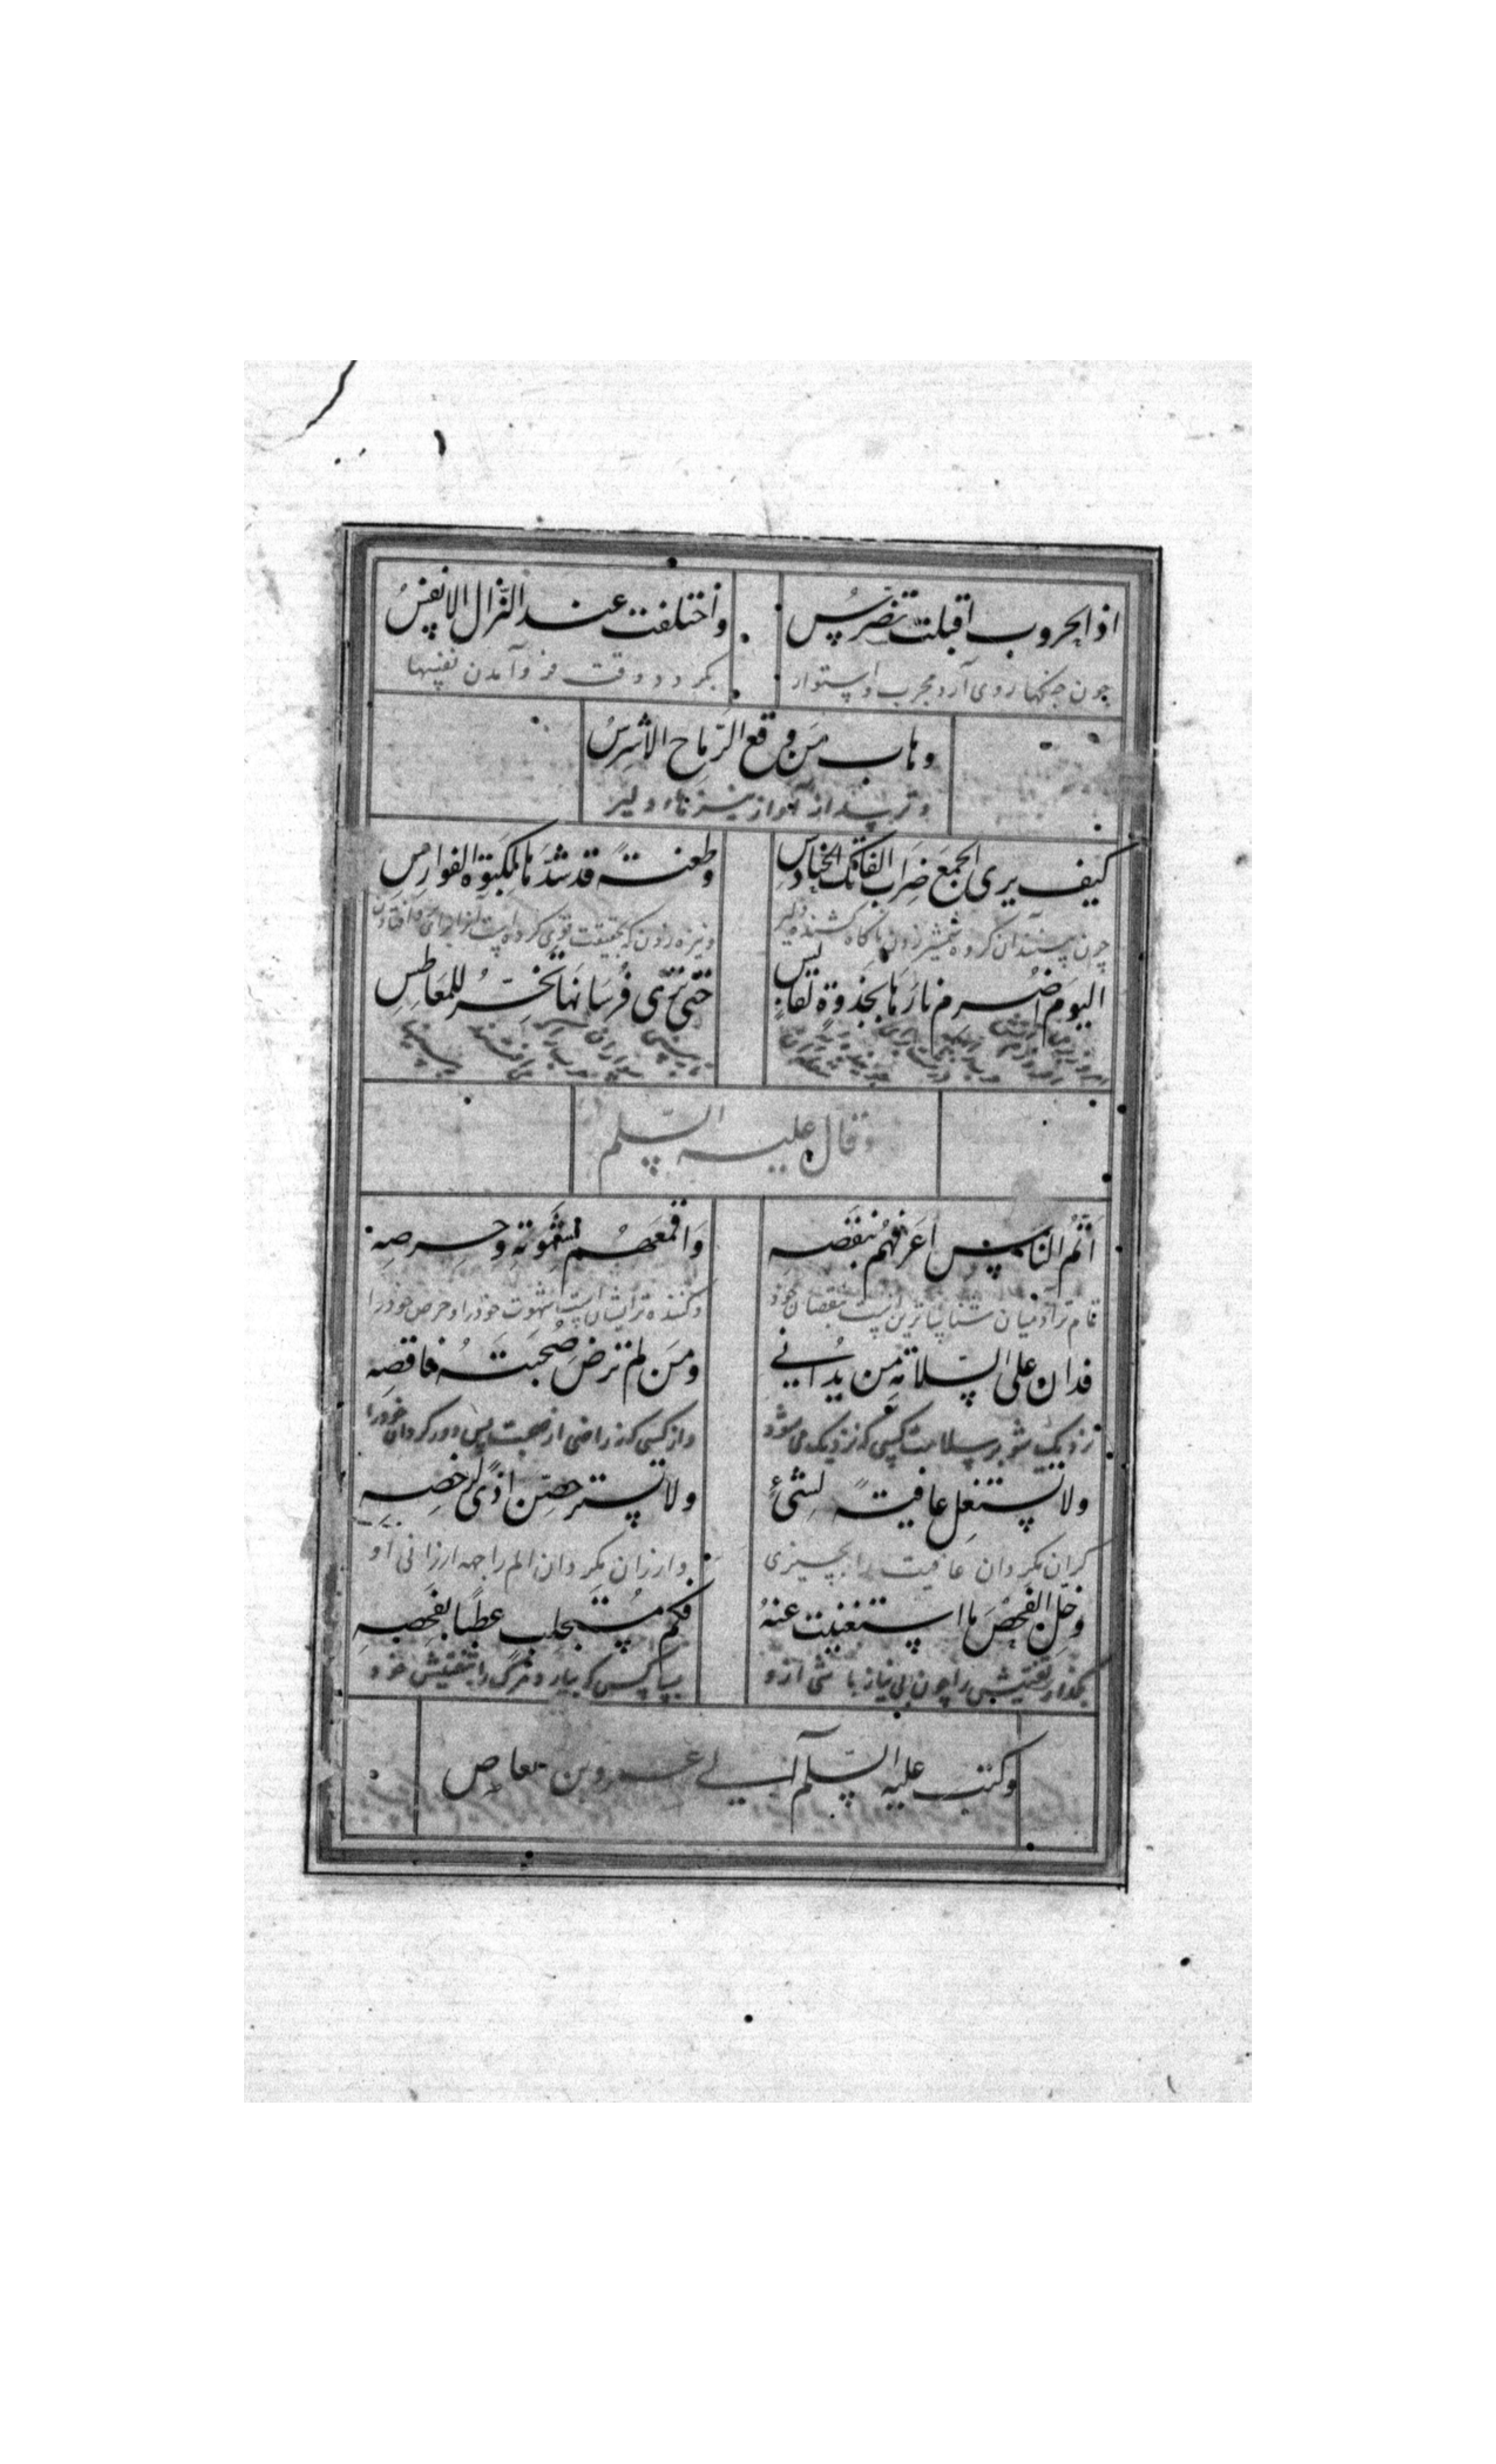 اذا الحروب اقبلت تضرّسُ واختلفت عند النّزال الانفسُ
چون جنکها روی آرد مجرب و استوار بکردد وقت فرو آمدن نفسها
وهاب مَن وقع الرّماح الاشرسُ
وترسد از آواز نیزها دلیر
کیف یری الجمعَ ضِرابَ الفاتک الخنادسِ وطعنةً قد شدّها لکبوة الفوارسِ
چون بینند آن کروه شمشیر زدن ناکاه کشنده دلیر ونیزه زدن که بحقیقت قوی کرده است آنرا برای افتادن
الیومَ اضرم نارَها بجذوةٍ لقابسِ حتّی تری فُرسانَها تخرّ للمَعاطسِ
وقال علیه السّلم
اَتمُّ النّاس اَعرَفُهم بنقصِه وَاَقمَعُهم لشهوتِه وحرصِه
تمام ترآدمیان شناساترین است بنقصان خود وکننده ترایشان است شهوت خودرا وحرص خودرا
فدان علی السّلامة من یُدانی ومَن لم ترضَ صُحبتَهُ فاقصِه
نزدیک شو بر سلامت کسی که نزدیک می شود واز کسی که نه راضی از صحبت پس دور کردان خودرا
ولا تستغلِ عافیةً لشیءٍ ولا تسترخِصَن اذًی لرخصِهِ
کران مکردان عافیت را بچیزی وارزان مکردان الم را جهه ارزانی او
وخلّ الفحصَ ما استغنیت عنهُ فکم مُستجلب عطبًا بفحصِهِ
بکذار تفتیش را چون بی نیاز باشی ازو بسا کس که بیارد مرک را بتفتیش خود
وکتب علیه السّلم الی عمرو بن عاص